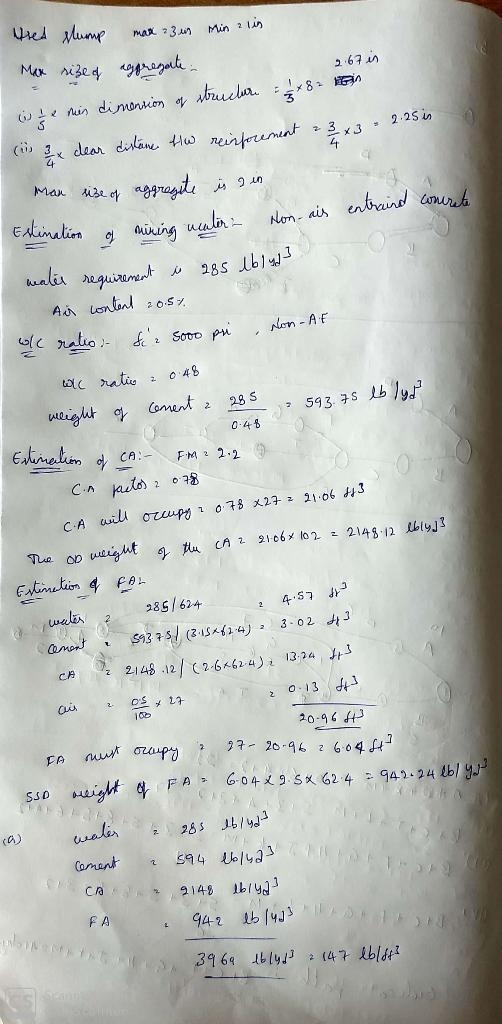 Used slump max = 3 in Min = 1 in
Max size of aggregate -
(i) 1/5 x min dimension of structure = 1/3 x 8 = 2.67 in
(ii) 3/4 x clear distance b/w reinforcement = 3/4 x 3 = 2.25 in
Max size of aggregate is 2 in
Estimation of mixing water :- Non-air entraind concrete
water requirement is 285 lb/yd3
Air content = 0.5 %
w/c ratio :- fc' = 5000 psi , Non-AE
w/c ratio = 0.48
weight of cement = 285/0.48 = 593.75 lb/yd3
Estimation of CA :- F.M = 2.2
C.A factor = 0.78
C.A will occupy = 0.78 x 27 = 21.06 ft3
The OD weight of the CA = 21.06 x 102 = 2148.12 lb/yd3
Estimation of FA :-
water = 285/624 = 4.57 ft3
cement = 593.75/(3.15x62.4) = 3.02 ft3
CA = 2148.12/(2.6x62.4) = 13.24 ft3
air = 0.5/100 x 27 = 0.13 ft3
20.96 ft3
FA must occupy = 27 - 20.96 = 6.04 ft3
SSD weight of FA = 6.04 x 2.5 x 62.4 = 942.24 lb/yd3
(a) water = 285 lb/yd3
cement = 594 lb/yd3
CA = 2148 lb/yd3
FA = 942 lb/yd3
3969 lb/yd3 = 147 lb/ft3
CS